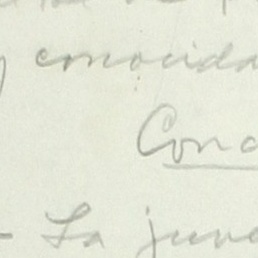 y conocida
Conc
- La juve